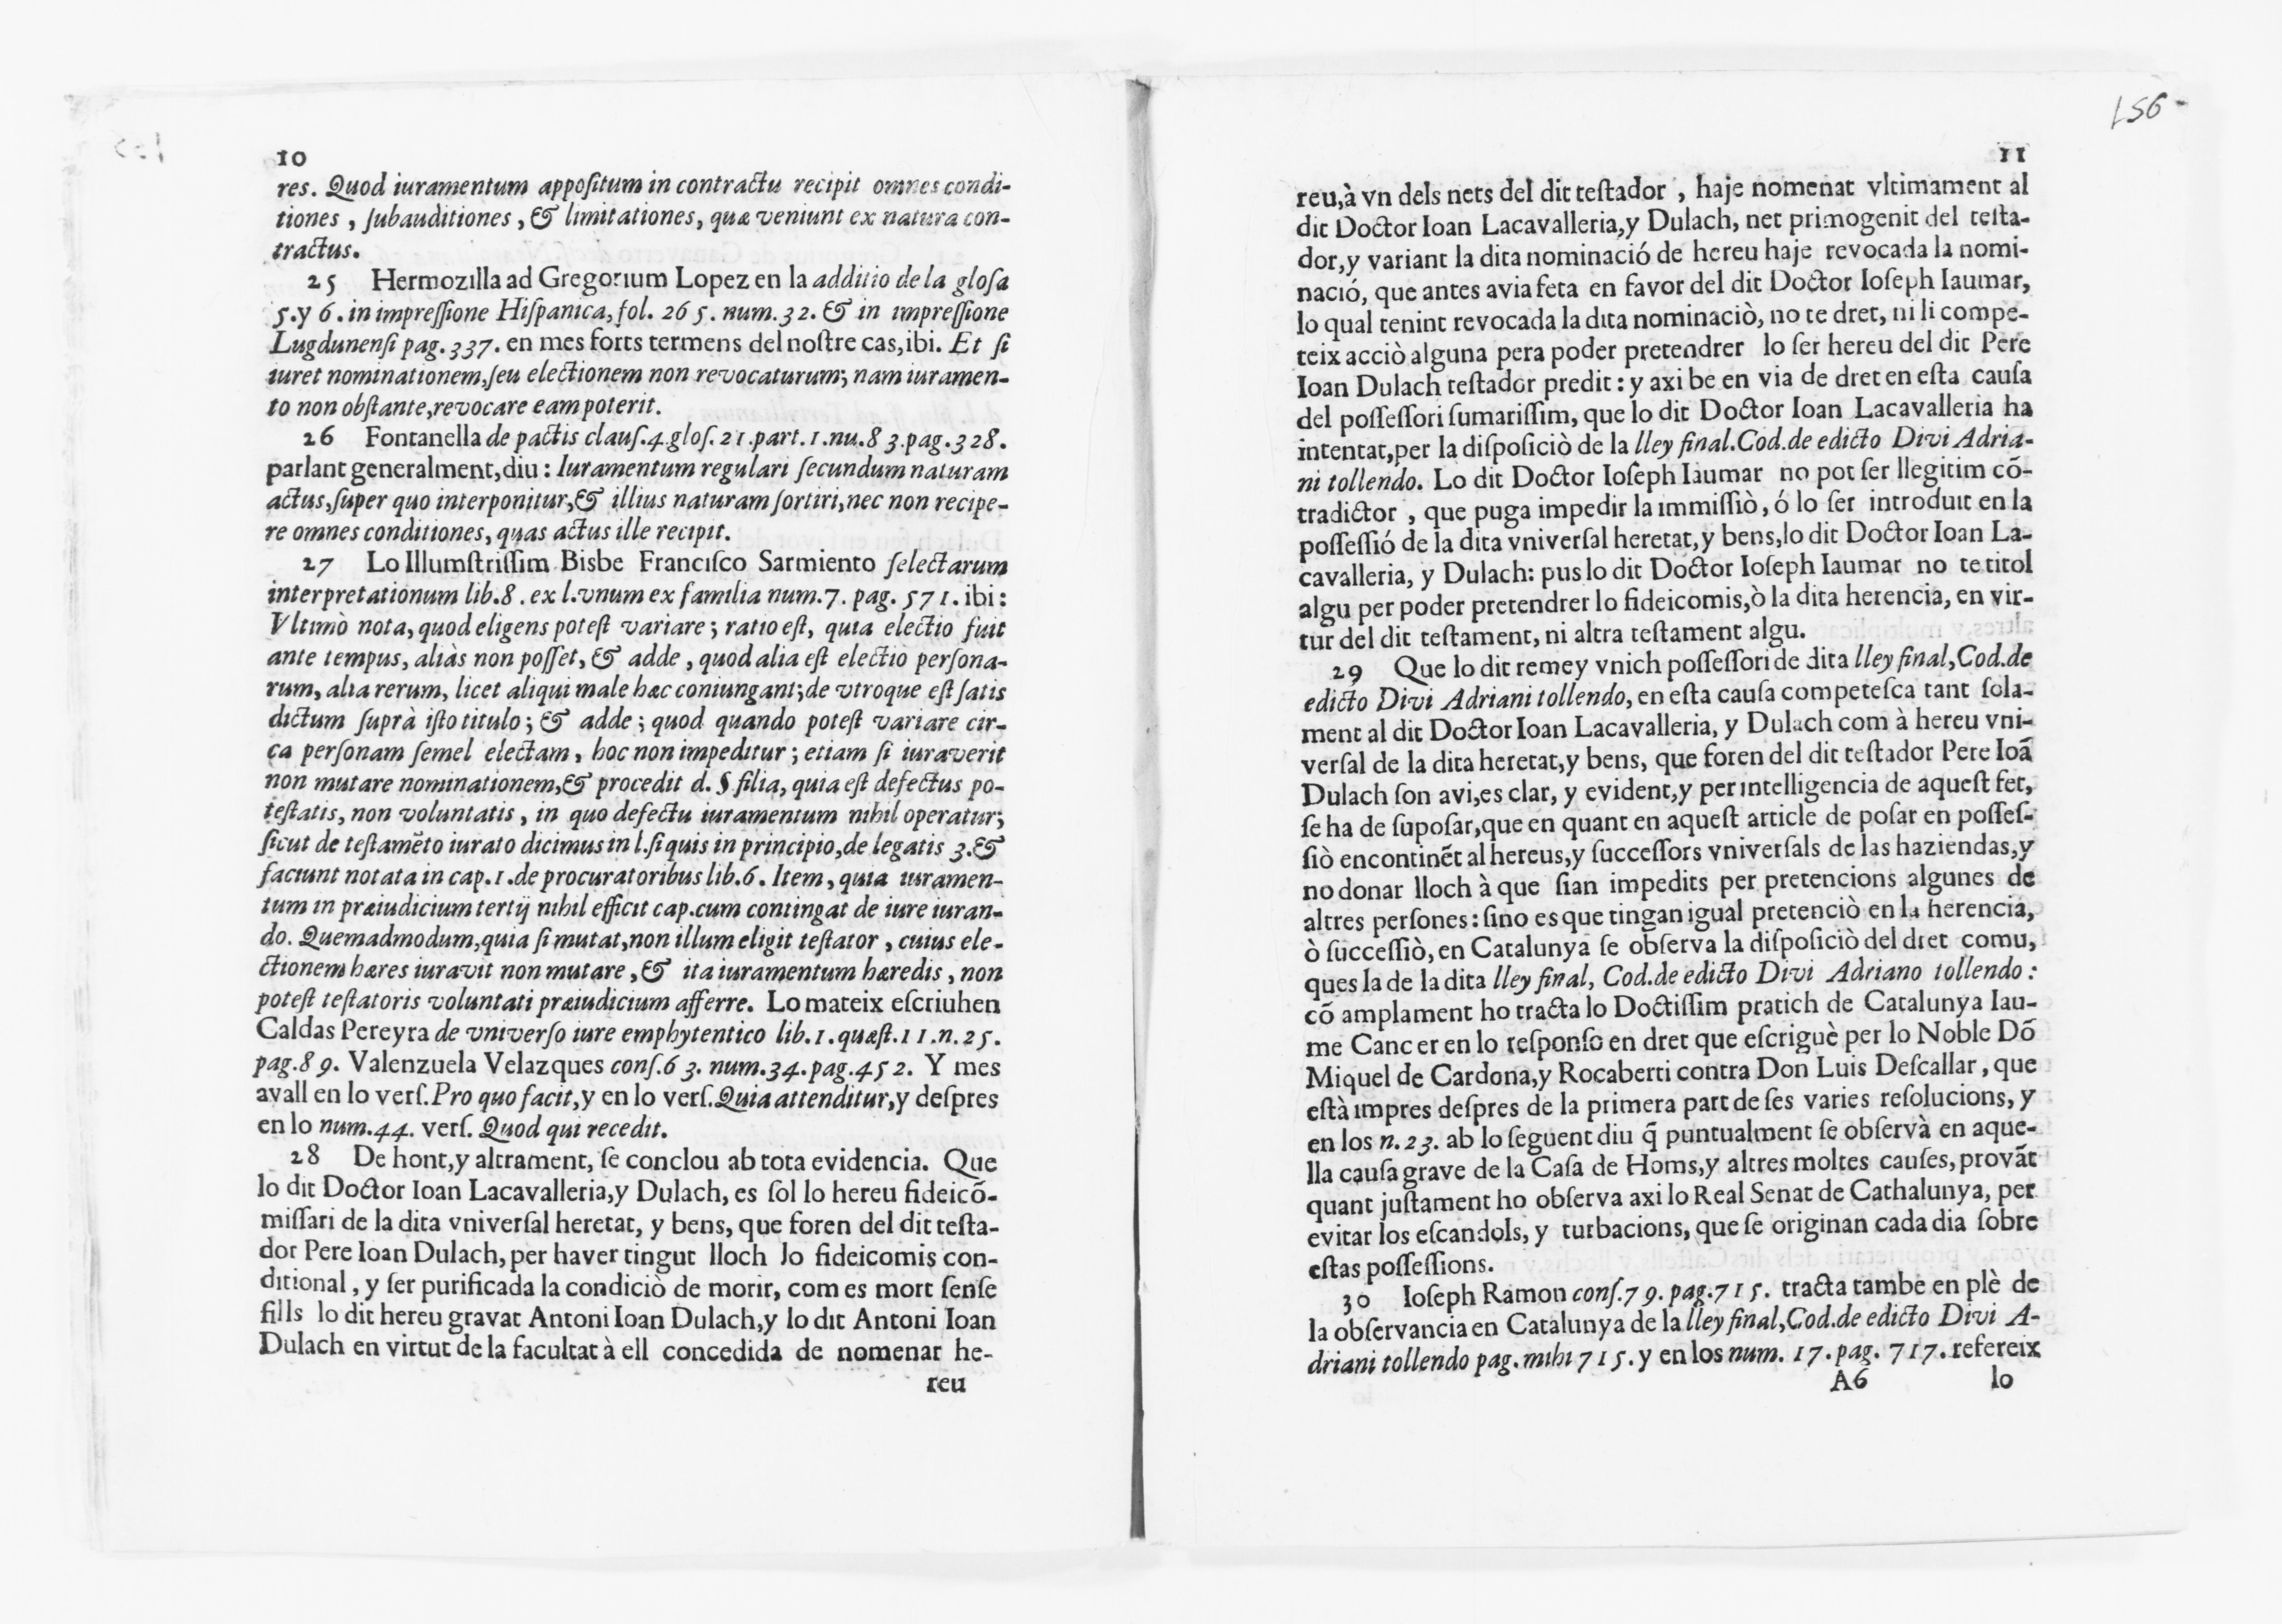 10
res. Quod iuramentum appoſitum in contractu recipit omnes condi-
tiones, ſubauditiones, & limitationes, quæ veniunt ex natura con-
tractus.
25 Hermozilla ad Gregorium Lopez en la additio de la gloſa
5.y 6. in impreſſione Hiſpanica, fol. 265. num.32. & in impreſſione
Lugdunenſi pag.337. en mes forts termens del noſtre cas, ibi. Et ſi
iuret nominationem, ſeu electionem non revocaturum; nam iuramen-
to non obſtante, revocare eam poterit.
26 Fontanella de pactis clauſ.4.gloſ.21.part.1.nu.83.pag.328.
parlant generalment, diu: Iuramentum regulari ſecundum naturam
actus, ſuper quo interponitur, & illius naturam ſortiri, nec non recipe-
re omnes conditiones, quas actus ille recipit.
27 Lo Illumſtriſſim Bisbe Franciſco Sarmiento ſelectarum
interpretationum lib.8. ex l.vnum ex familia num.7. pag. 571. ibi:
Vltimò nota, quod eligens poteſt variare; ratio eſt, quia electio fuit
ante tempus, aliàs non poſſet, & adde, quod alia eſt electio perſona-
rum, alia rerum, licet aliqui male hæc coniungant; de vtroque eſt ſatis
dictum ſuprà iſto titulo; & adde; quod quando poteſt variare cir-
ca perſonam ſemel electam, hoc non impeditur; etiam ſi iuraverit
non mutare nominationem, & procedit d. § filia, quia eſt defectus po-
teſtatis, non voluntatis, in quo defectu iuramentum nihil operatur;
ſicut de teſtamẽto iurato dicimus in l.ſi quis in principio, de legatis 3.&
faciunt notata in cap.1.de procuratoribus lib.6. Item, quia iuramen-
tum in præiudicium tertij nihil efficit cap.cum contingat de iure iuran-
do. Quemadmodum, quia ſi mutat, non illum eligit teſtator, cuius ele-
ctionem hæres iuravit non mutare, & ita iuramentum hæredis, non
poteſt teſtatoris voluntati præiudicium afferre. Lo mateix eſcriuhen
Caldas Pereyra de vniverſo iure emphytentico lib.1.quæſt.11.n.25.
pag.89. Valenzuela Velazques conſ.63. num.34.pag.452. Y mes
avall en lo verſ.Pro quo facit, y en lo verſ.Quia attenditur, y deſpres
en lo num.44. verſ. Quod qui recedit.
28 De hont, y altrament, ſe conclou ab tota evidencia. Que
lo dit Doctor Ioan Lacavalleria, y Dulach, es ſol lo hereu fideicõ-
miſſari de la dita vniverſal heretat, y bens, que foren del dit teſta-
dor Pere Ioan Dulach, per haver tingut lloch lo fideicomis con-
ditional, y ſer purificada la condiciò de morir, com es mort ſenſe
fills lo dit hereu gravat Antoni Ioan Dulach, y lo dit Antoni Ioan
Dulach en virtut de la facultat à ell concedida de nomenar he-
reu
156
11
reu, à vn dels nets del dit teſtador, haje nomenat vltimament al
dit Doctor Ioan Lacavalleria, y Dulach, net primogenit del teſta-
dor, y variant la dita nominació de hereu haje revocada la nomi-
nació, que antes avia feta en favor del dit Doctor Ioſeph Iaumar,
lo qual tenint revocada la dita nominaciò, no te dret, ni li compe-
teix acciò alguna pera poder pretendrer lo ſer hereu del dit Pere
Ioan Dulach teſtador predit: y axi be en via de dret en eſta cauſa
del poſſeſſori ſumariſſim, que lo dit Doctor Ioan Lacavalleria ha
intentat, per la diſpoſiciò de la lley final.Cod.de edicto Divi Adria-
ni tollendo. Lo dit Doctor Ioſeph Iaumar no pot ſer llegitim cõ-
tradictor, que puga impedir la immiſſiò, ó lo ſer introduit en la
poſſeſſió de la dita vniverſal heretat, y bens, lo dit Doctor Ioan La-
cavalleria, y Dulach: pus lo dit Doctor Ioſeph Iaumar no te titol
algu per poder pretendrer lo fideicomis, ò la dita herencia, en vir-
tur del dit teſtament, ni altra teſtament algu.
29 Que lo dit remey vnich poſſeſſori de dita lley final, Cod.de
edicto Divi Adriani tollendo, en eſta cauſa competeſca tant ſola-
ment al dit Doctor Ioan Lacavalleria, y Dulach com à hereu vni-
verſal de la dita heretat, y bens, que foren del dit teſtador Pere Ioã
Dulach ſon avi, es clar, y evident, y per intelligencia de aqueſt fet,
ſe ha de ſupoſar, que en quant en aqueſt article de poſar en poſſeſ-
ſiò encontinẽt al hereus, y ſucceſſors vniverſals de las haziendas, y
no donar lloch à que ſian impedits per pretencions algunes de
altres perſones: ſino es que tingan igual pretenciò en la herencia,
ò ſucceſſiò, en Catalunya ſe obſerva la diſpoſiciò del dret comu,
ques la de la dita lley final, Cod.de edicto Divi Adriano tollendo:
cõ amplament ho tracta lo Doctiſſim pratich de Catalunya Iau-
me Cancer en lo reſponſo en dret que eſcriguè per lo Noble Dõ
Miquel de Cardona, y Rocaberti contra Don Luis Deſcallar, que
eſtà impres deſpres de la primera part de ſes varies reſolucions, y
en los n.23. ab lo ſeguent diu q̃ puntualment ſe obſervà en aque-
lla cauſa grave de la Caſa de Homs, y altres moltes cauſes, provãt
quant juſtament ho obſerva axi lo Real Senat de Cathalunya, per
evitar los eſcandols, y turbacions, que ſe originan cada dia ſobre
eſtas poſſeſſions.
30 Ioſeph Ramon conſ.79.pag.715. tracta tambe en plè de
la obſervancia en Catalunya de la lley final, Cod.de edicto Divi A-
driani tollendo pag.mihi 715. y en los num. 17.pag. 717. refereix
A6 lo